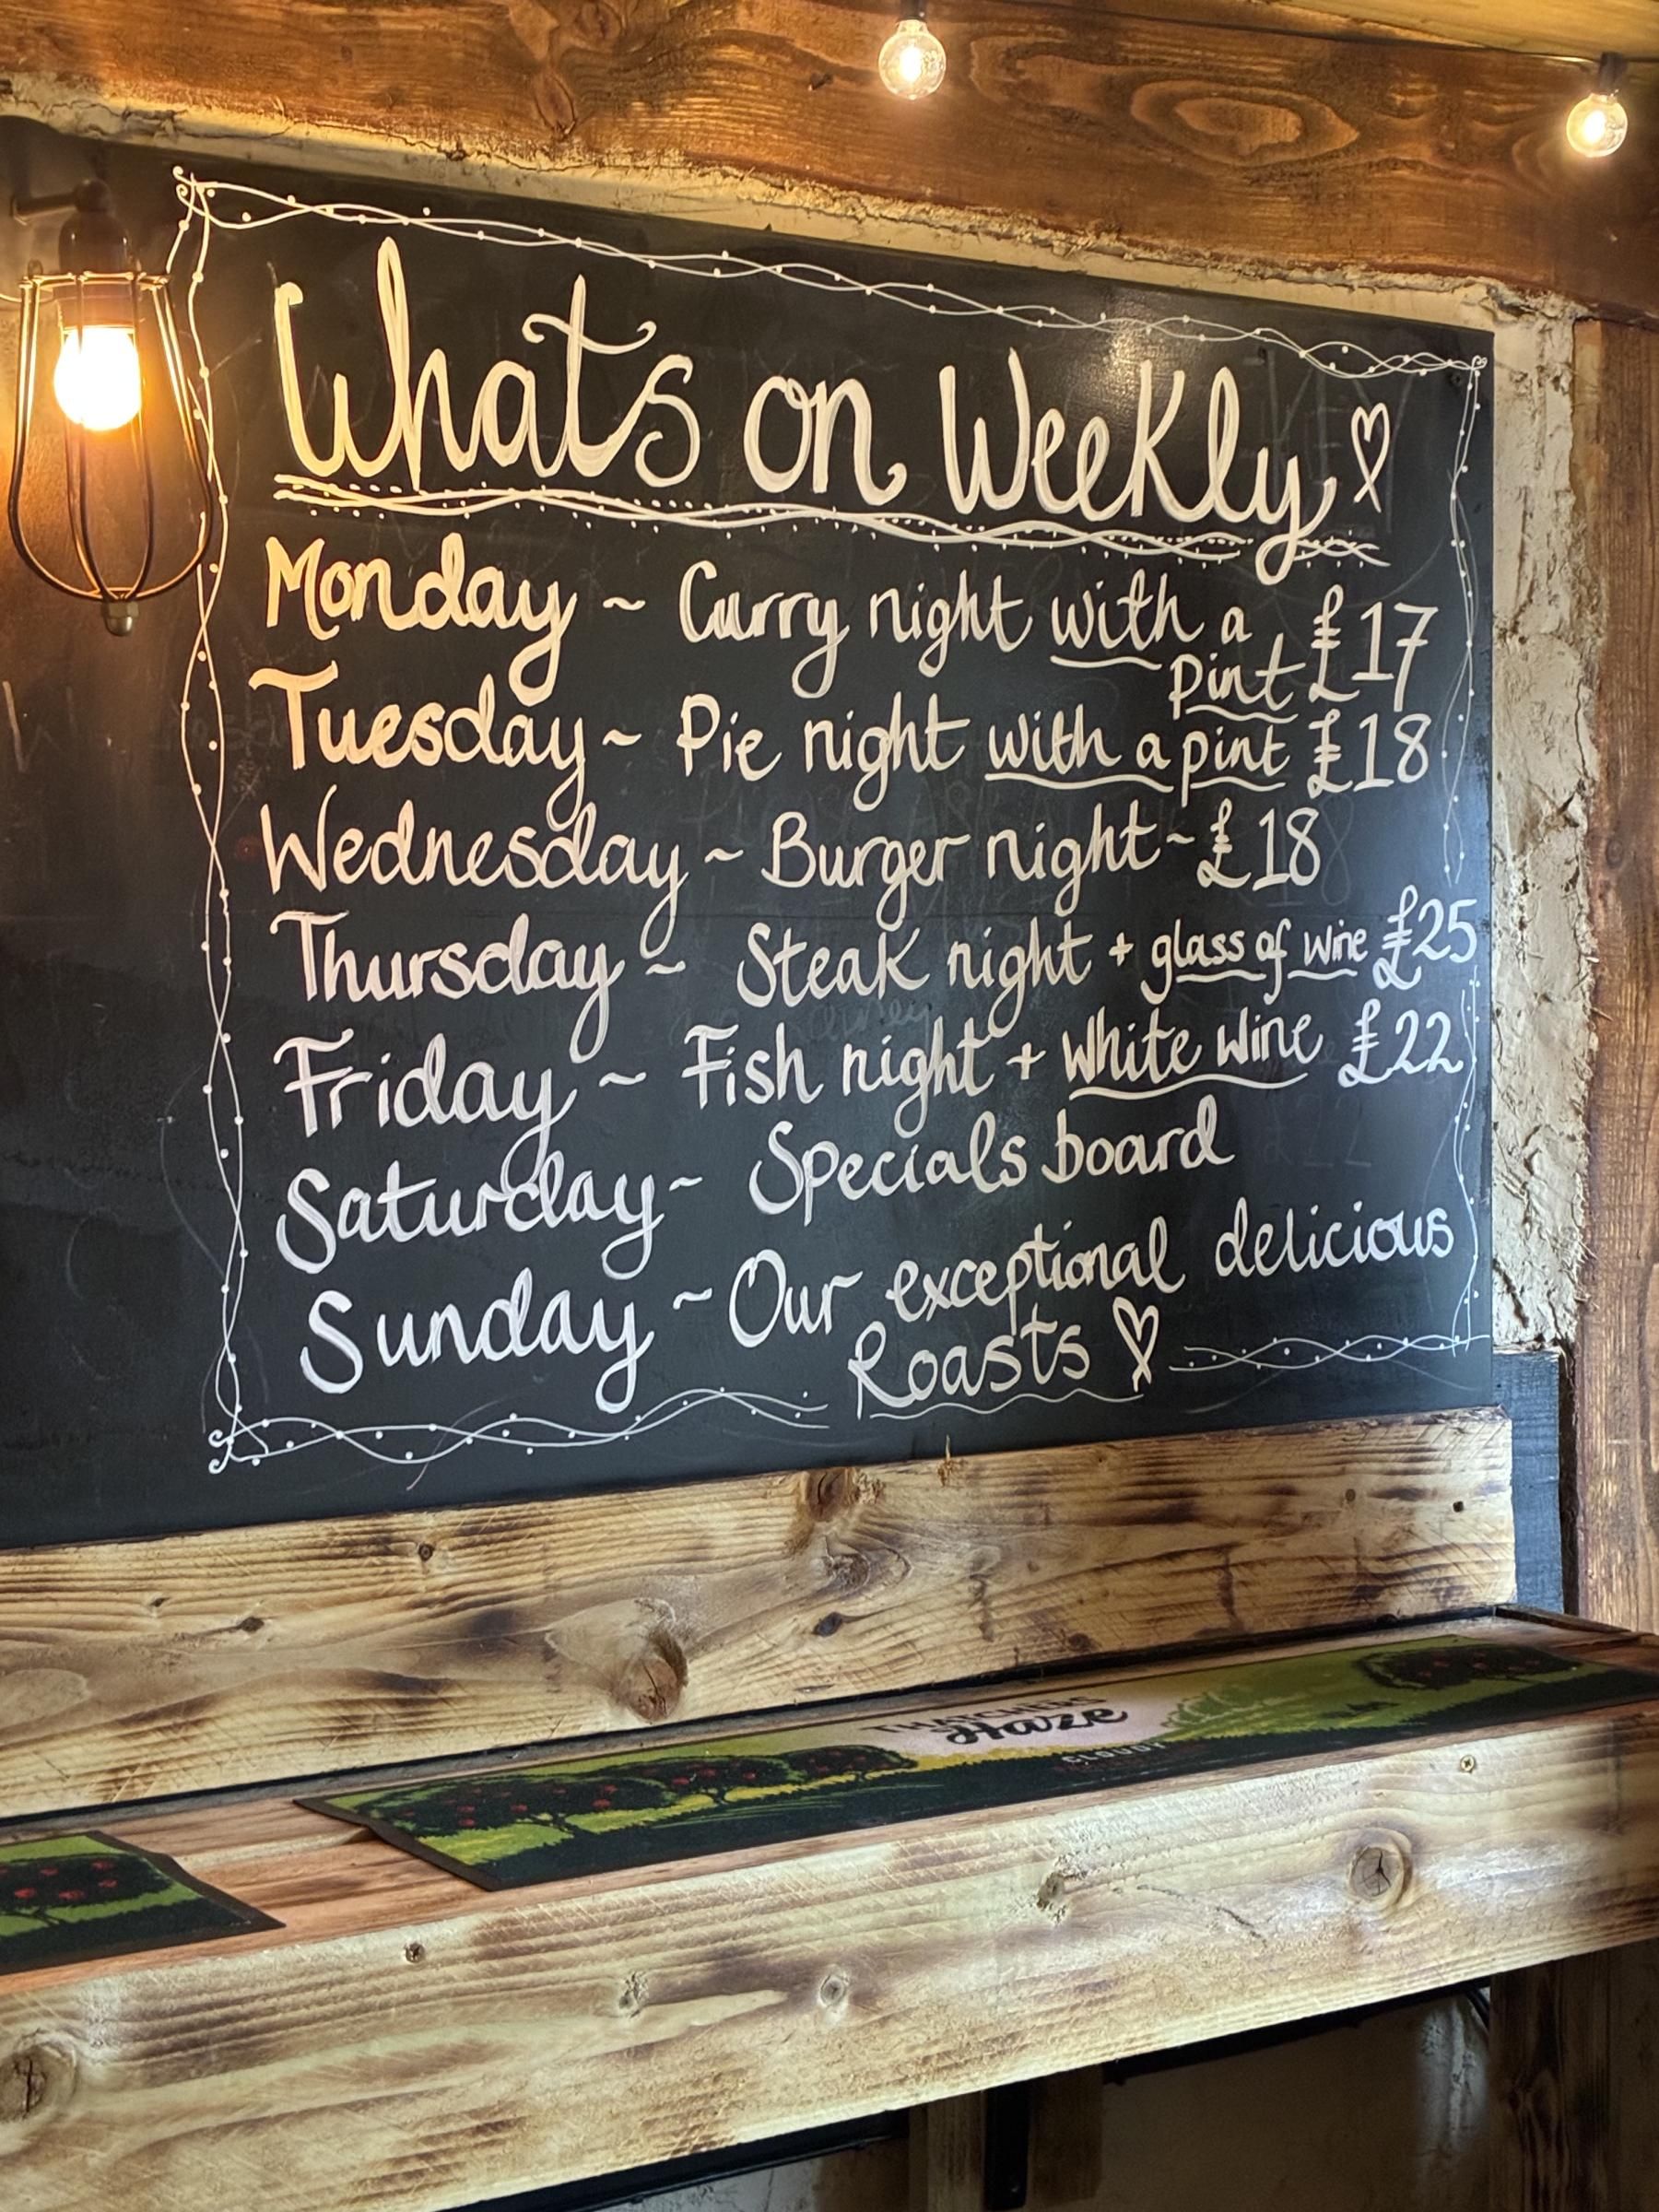 Whats on Weekly
Monday ~ Curry night with a
pint £17
Tuesday ~ Pie night with a pint £18
Wednesday ~ Burger night ~ £18
Thursday ~ Steak night + glass of wine £25
Friday ~ Fish night + white wine £22
Saturday ~ Specials board
Sunday ~ Our exceptional delicious
Roasts
THATCHERS
Haze
CLOUDY